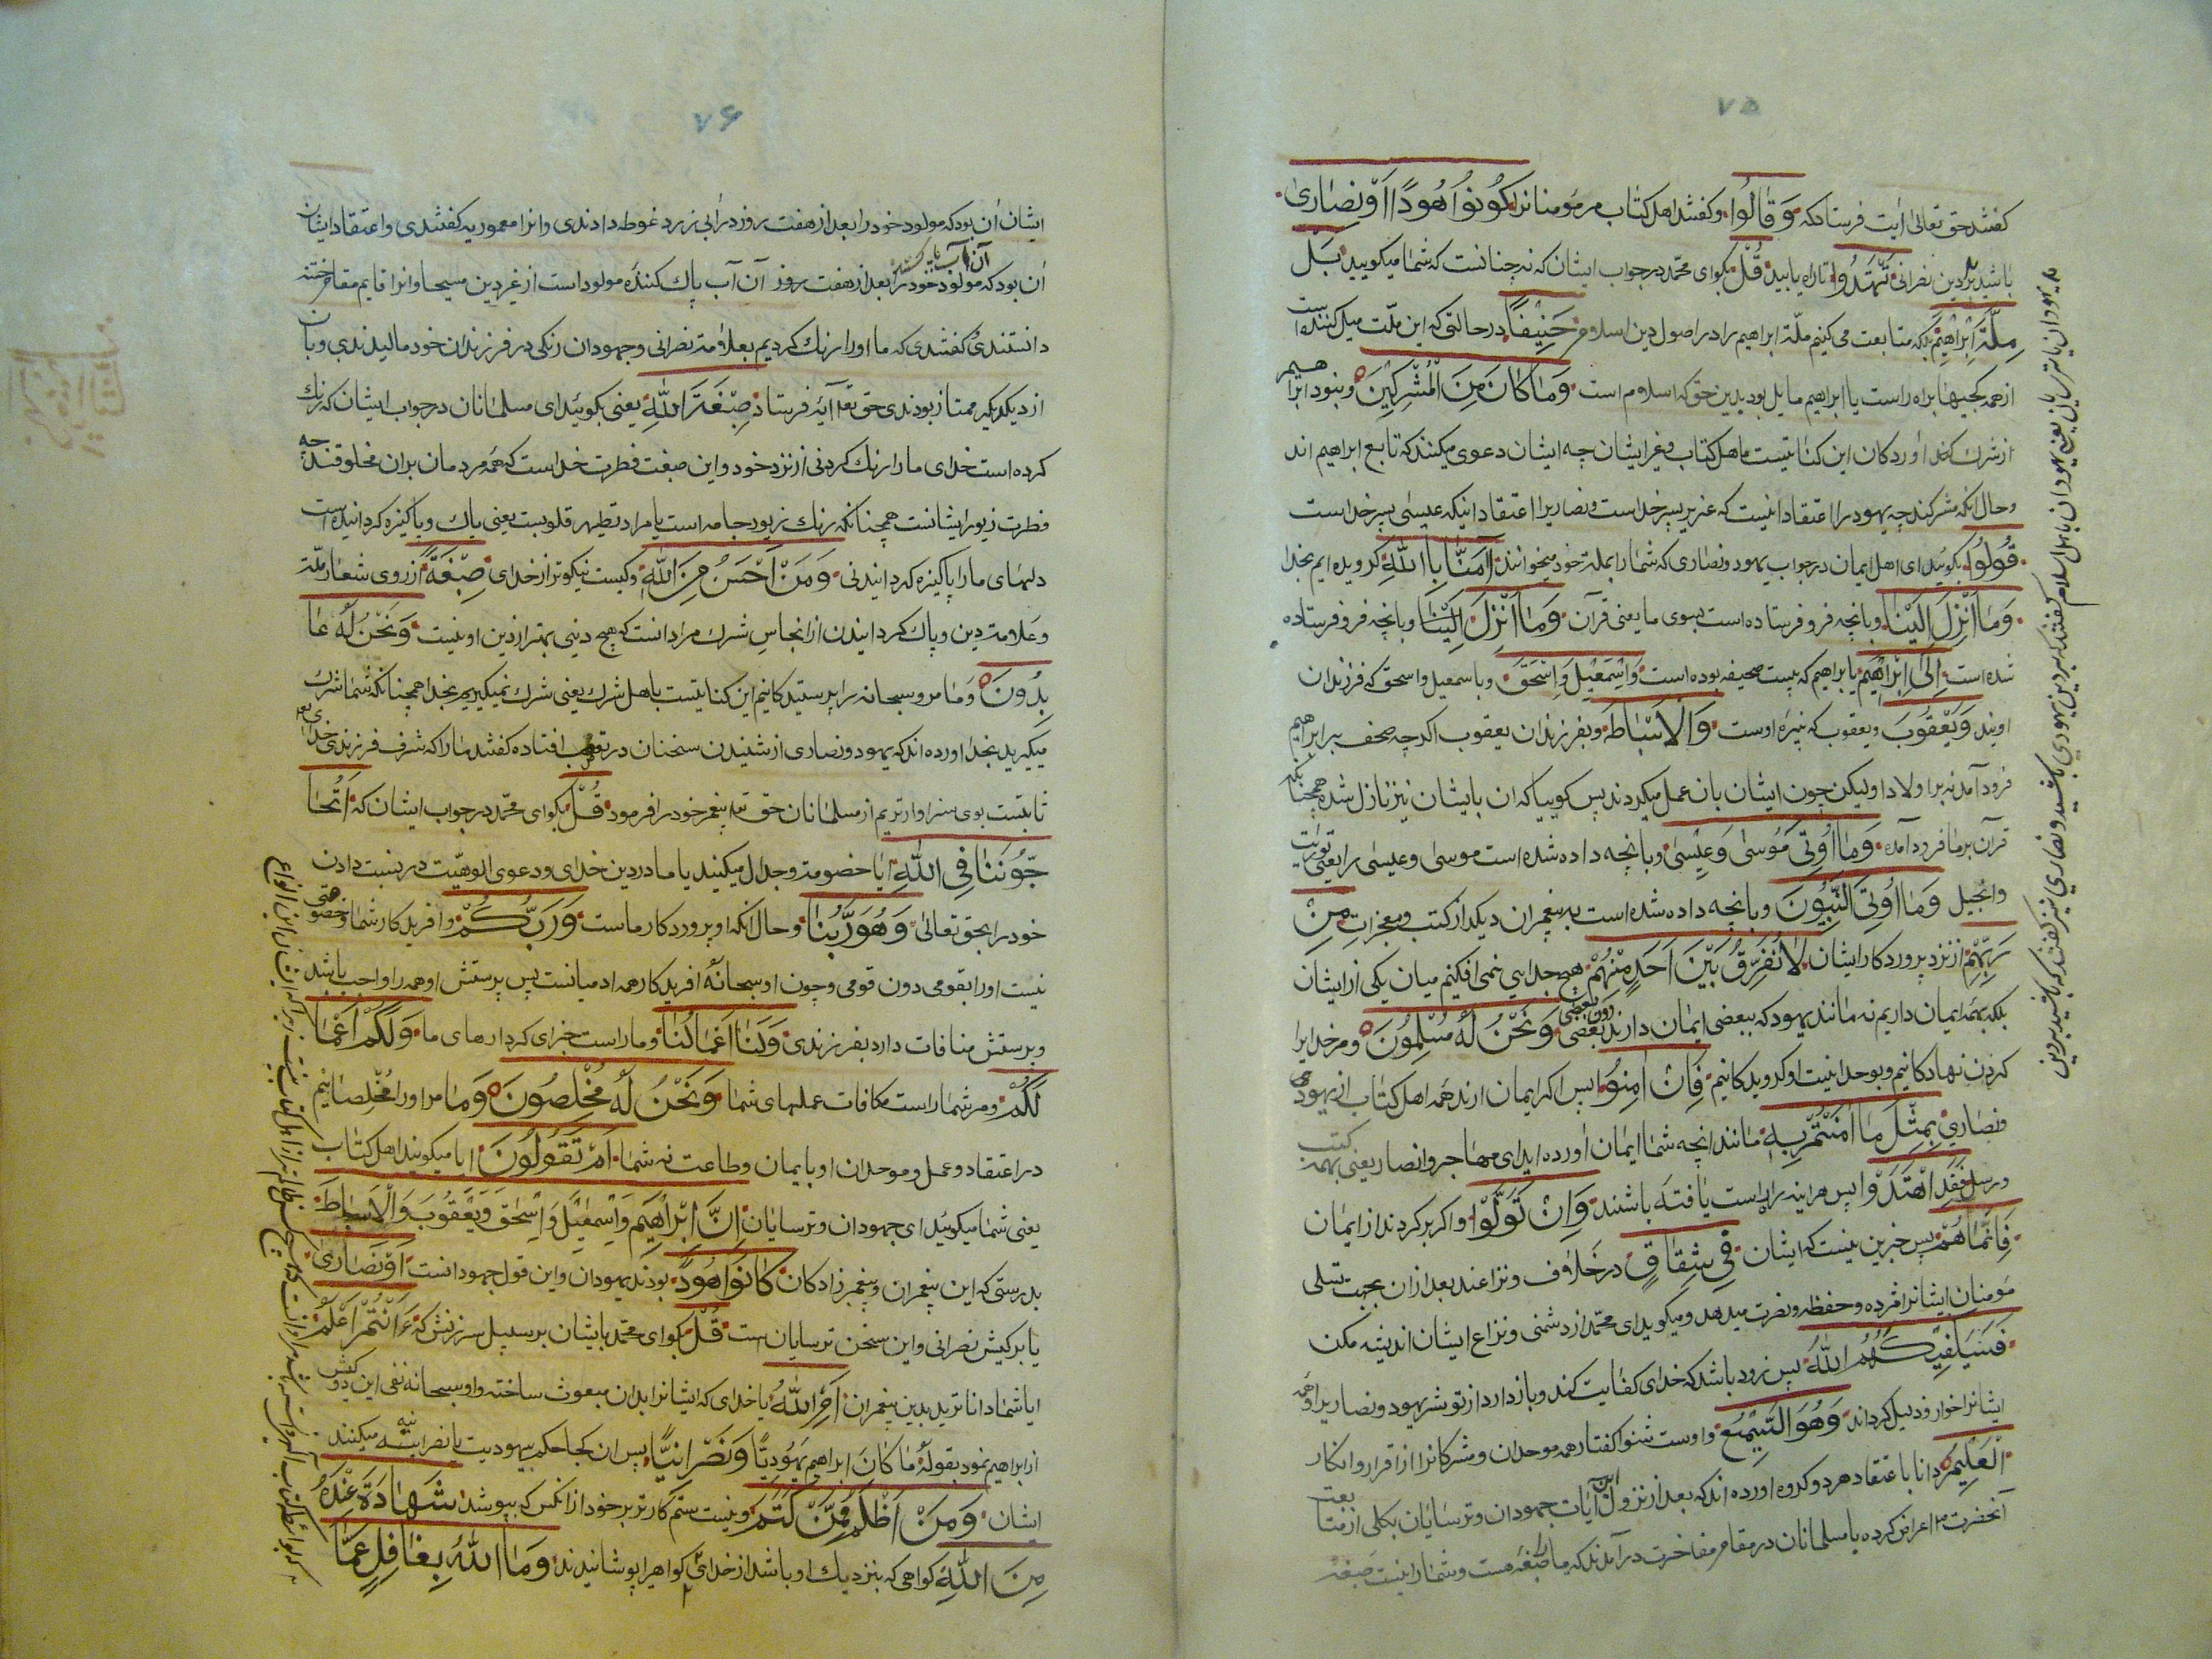 ۷۵
كفتند حق تعالى آيت فرستاد كه وَقَالُوا وكفتند اهل كتاب مر مؤمنانرا كُونُوا هُودًا أَوْ نَصَارىٰ
باشيد بر دين نصرانى تَهْتَدُوا تا راه يابيد قُلْ بكو اى محمد در جواب ايشان كه نه چنانست كه شما ميكوييد بَلْ
مِلَّةَ اِبْرَاهِيمَ بلكه متابعت مى كنيم ملّة ابراهيم را در اصول دين اسلام حَنِيفًا در حالتى كه اين ملّت ميل كننده است
از همه كجيها براه راست يا ابراهيم مايل بود بدين حق كه اسلام است وَمَا كَانَ مِنَ الْمُشْرِكِينَ ونبود ابراهيم
از شرك بخدا آورد كان اين كنايتست باهل كتاب وغير ايشان چه ايشان دعوى ميكنند كه تابع ابراهيم اند
وحال انكه مشركند چه يهود را اعتقاد انيست كه عزير پسر خداست ونصاريرا اعتقاد انيكه عيسى پسر خداست
قُولُوا بكوئيد اى اهل ايمان در جواب يهود ونصارى كه شما را بملت خود ميخوانند آمَنَّا بِاللّٰهِ كرويده ايم بخدا
وَمَا اُنْزِلَ اِلَيْنَا وبانچه فرو فرستاده است بسوى ما يعنى قرآن وَمَا اُنْزِلَ اِلَيْنَا وبانچه فرو فرستاده
شده است اِلىٰ اِبْرَاهِيمَ بابراهيم كه بيست صحيفه بوده است وَاِسْمٰعِيلَ وَاِسْحٰقَ وباسمعيل واسحق كه فرزندان
اويند وَيَعْقُوبَ ويعقوب كه نبيره اوست وَالْاَسْبَاطِ وبفرزندان يعقوب اكرچه صحف بر ابراهيم
فرود آمد نه بر اولاد او ليكن چون ايشان بان عمل ميكردند پس كوييا كه ان بايشان نيز نازل شده همچنانكه
قرآن بر ما فرود آمده وَمَا اُوتِىَ مُوسىٰ وَعِيسىٰ وبانچه داده شده است موسى وعيسى را يعنى توريت
وانجيل وَمَا اُوتِىَ النَّبِيُّونَ وبانچه داده شده است به پيغمبران ديكر از كتب ومعجزات مِنْ
رَبِّهِمْ از نزد پروردكار ايشان لَا نُفَرِّقُ بَيْنَ اَحَدٍ مِنْهُمْ هيچ جدايى نمى افكنيم ميان يكى از ايشان
بلكه بهمه ايمان داريم نه مانند يهود كه ببعضى ايمان دارند دون بعضى وَنَحْنُ لَهُ مُسْلِمُونَ ومر خدايرا
كردن نهاد كانيم وبوحدانيت او كرويد كانيم فَاِنْ اٰمَنُوا پس اكر ايمان ارند همه اهل كتاب از يهود
ونصارى بِمِثْلِ مَا اٰمَنْتُمْ بِهِ مانند انچه شما ايمان اورده ايد اى مهاجر وانصار يعنى بهمه كتب
ورسل فَقَدِ اهْتَدَوْا پس هراينه راه راست يافته باشند وَاِنْ تَوَلَّوْا واكر بركردند از ايمان
فَاِنَّمَا هُمْ پس جزين نيست كه ايشان فِى شِقَاقٍ در خلاف ونزاعند بعد از ان بجهت تسلى
مؤمنان ايشانرا مژده وحفظ ونصرت ميدهد وميكويد اى محمد از دشمنى ونزاع ايشان انديشه مكن
فَسَيَكْفِيكَهُمُ اللّٰهُ پس زود باشد كه خداى كفايت كند وباز دارد از تو شر يهود ونصاريرا وهمه
ايشانرا خوار وذليل كرداند وَهُوَ السَّمِيعُ واوست شنوا كفتار همه موحدان ومشركانرا از اقرار وانكار
الْعَلِيمُ دانا باعتقاد هر دو كروه اورده اند كه بعد از نزول اين آيات جهودان وترسايان بكلى از متابعت
آنحضرت اعراض كرده با مسلمانان در مقام مفاخرت در آمدند كه ما را صبغه هست وشما را نيست صبغه
۷۶
ايشان آن بود كه مولود خود را بعد از هفت روز در آبى زرد غوطه دادندى وانرا معموديه كفتندى واعتقاد ايشان
آن بود كه مولود خود را بعد از هفت روز آن آب پاك كننده مولود است از غير دين مسيحا وانرا قايم مقام ختنه
دانستندى وكفتندى كه ما اورا رنك كرديم بعلامة نصرانى وجهودان رنكى در فرزندان خود ماليدندى وبان
از ديكديكر ممتاز بودندى حق تعالى آية فرستاد صِبْغَةَ اللّٰهِ يعنى بكوئيد اى مسلمانان در جواب ايشان كه رنك
كرده است خداى ما را رنك كردنى از نزد خود واين صبغت فطرت خداست كه همه مردمان بران مخلوقند چه
فطرت زيور ايشانست همچنانكه رنك زيور جامه است يا مراد تطهير قلوبست يعنى پاك وپاكيزه كردانيده است
دلهاى ما را پاكيزه كردانيدنى وَمَنْ اَحْسَنُ مِنَ اللّٰهِ وكيست نيكوتر از خداى صِبْغَةً از روى شعار ملّة
وعلامة دين وپاك كردانيدن از انجاس شرك مراد انست كه هيچ دينى بهتر از دين او نيست وَنَحْنُ لَهُ عَا
بِدُونَ وما مر او سبحانه را پرستيد كانيم اين كنايتست باهل شرك يعنى شرك نميكيريم بخدا همچنانكه شما شرك
ميكيريد بخدا اورده اند كه يهود ونصارى از شنيدن سخنان در تعجب افتاده كفتند ما را كه شرف فرزندى خداى
ثابتست بوى سزاوارتريم از مسلمانان حق تعالى پيغمبر خود را فرمود قُلْ بكو اى محمد در جواب ايشان كه اَتُحَا
جُّونَنَا فِى اللّٰهِ ايا خصومة وجدال ميكنيد با ما در دين خداى ودعوى الوهيت در نسبت دادن
خود را بحق تعالى وَهُوَ رَبُّنَا وحال انكه او پروردكار ماست وَرَبُّكُمْ وافريد كار شما وخصوصيتى
نيست اورا بقومى دون قومى وچون او سبحانه افريد كار همه ادميانست پس پرستش او همه را واجب باشد
وپرستش منافات دارد بفرزندى وَلَنَا اَعْمَالُنَا وما راست جزاى كردارهاى ما وَلَكُمْ اَعْمَا
لُكُمْ ومر شما راست مكافات عملهاى شما وَنَحْنُ لَهُ مُخْلِصُونَ وما مر اورا مخلصانيم
در اعتقاد وعمل وموحدان او بايمان وطاعت نه شما اَمْ تَقُولُونَ ايا ميكويند اهل كتاب
يعنى شما ميكوئيد اى جهودان وترسايان اِنَّ اِبْرَاهِيمَ وَاِسْمٰعِيلَ وَاِسْحٰقَ وَيَعْقُوبَ وَالْاَسْبَاطَ
بدرستى كه اين پيغمبران وپيغمبرزادكان كَانُوا هُودًا بودند يهودان واين قول جهودانست اَوْ نَصَارىٰ
يا بر كيش نصرانى واين سخن ترسايان است قُلْ بكو اى محمد بايشان بر سبيل سرزنش كه ءَاَنْتُمْ اَعْلَمُ
ايا شما داناتريد بدين پيغمبران اَمِ اللّٰهُ يا خداى كه ايشانرا بدان مبعوث ساخته واو سبحانه نفى اين دو كيش
از ابراهيم نمود بقوله مَا كَانَ ابراهيم يَهُودِيًّا وَنَصْرَانِيًّا پس ان كجا حكم بيهوديت يا نصرانيه ميكنند
ايشان وَمَنْ اَظْلَمُ مِمَّنْ كَتَمَ وكيست ستم كارتر بر خود از انكس كه بپوشد شَهَادَةً عِنْدَهُ
مِنَ اللّٰهِ كواهى كه بنزديك او باشد از خداى كواهيرا پوشانيدند وَمَا اللّٰهُ بِغَافِلٍ عَمَّا